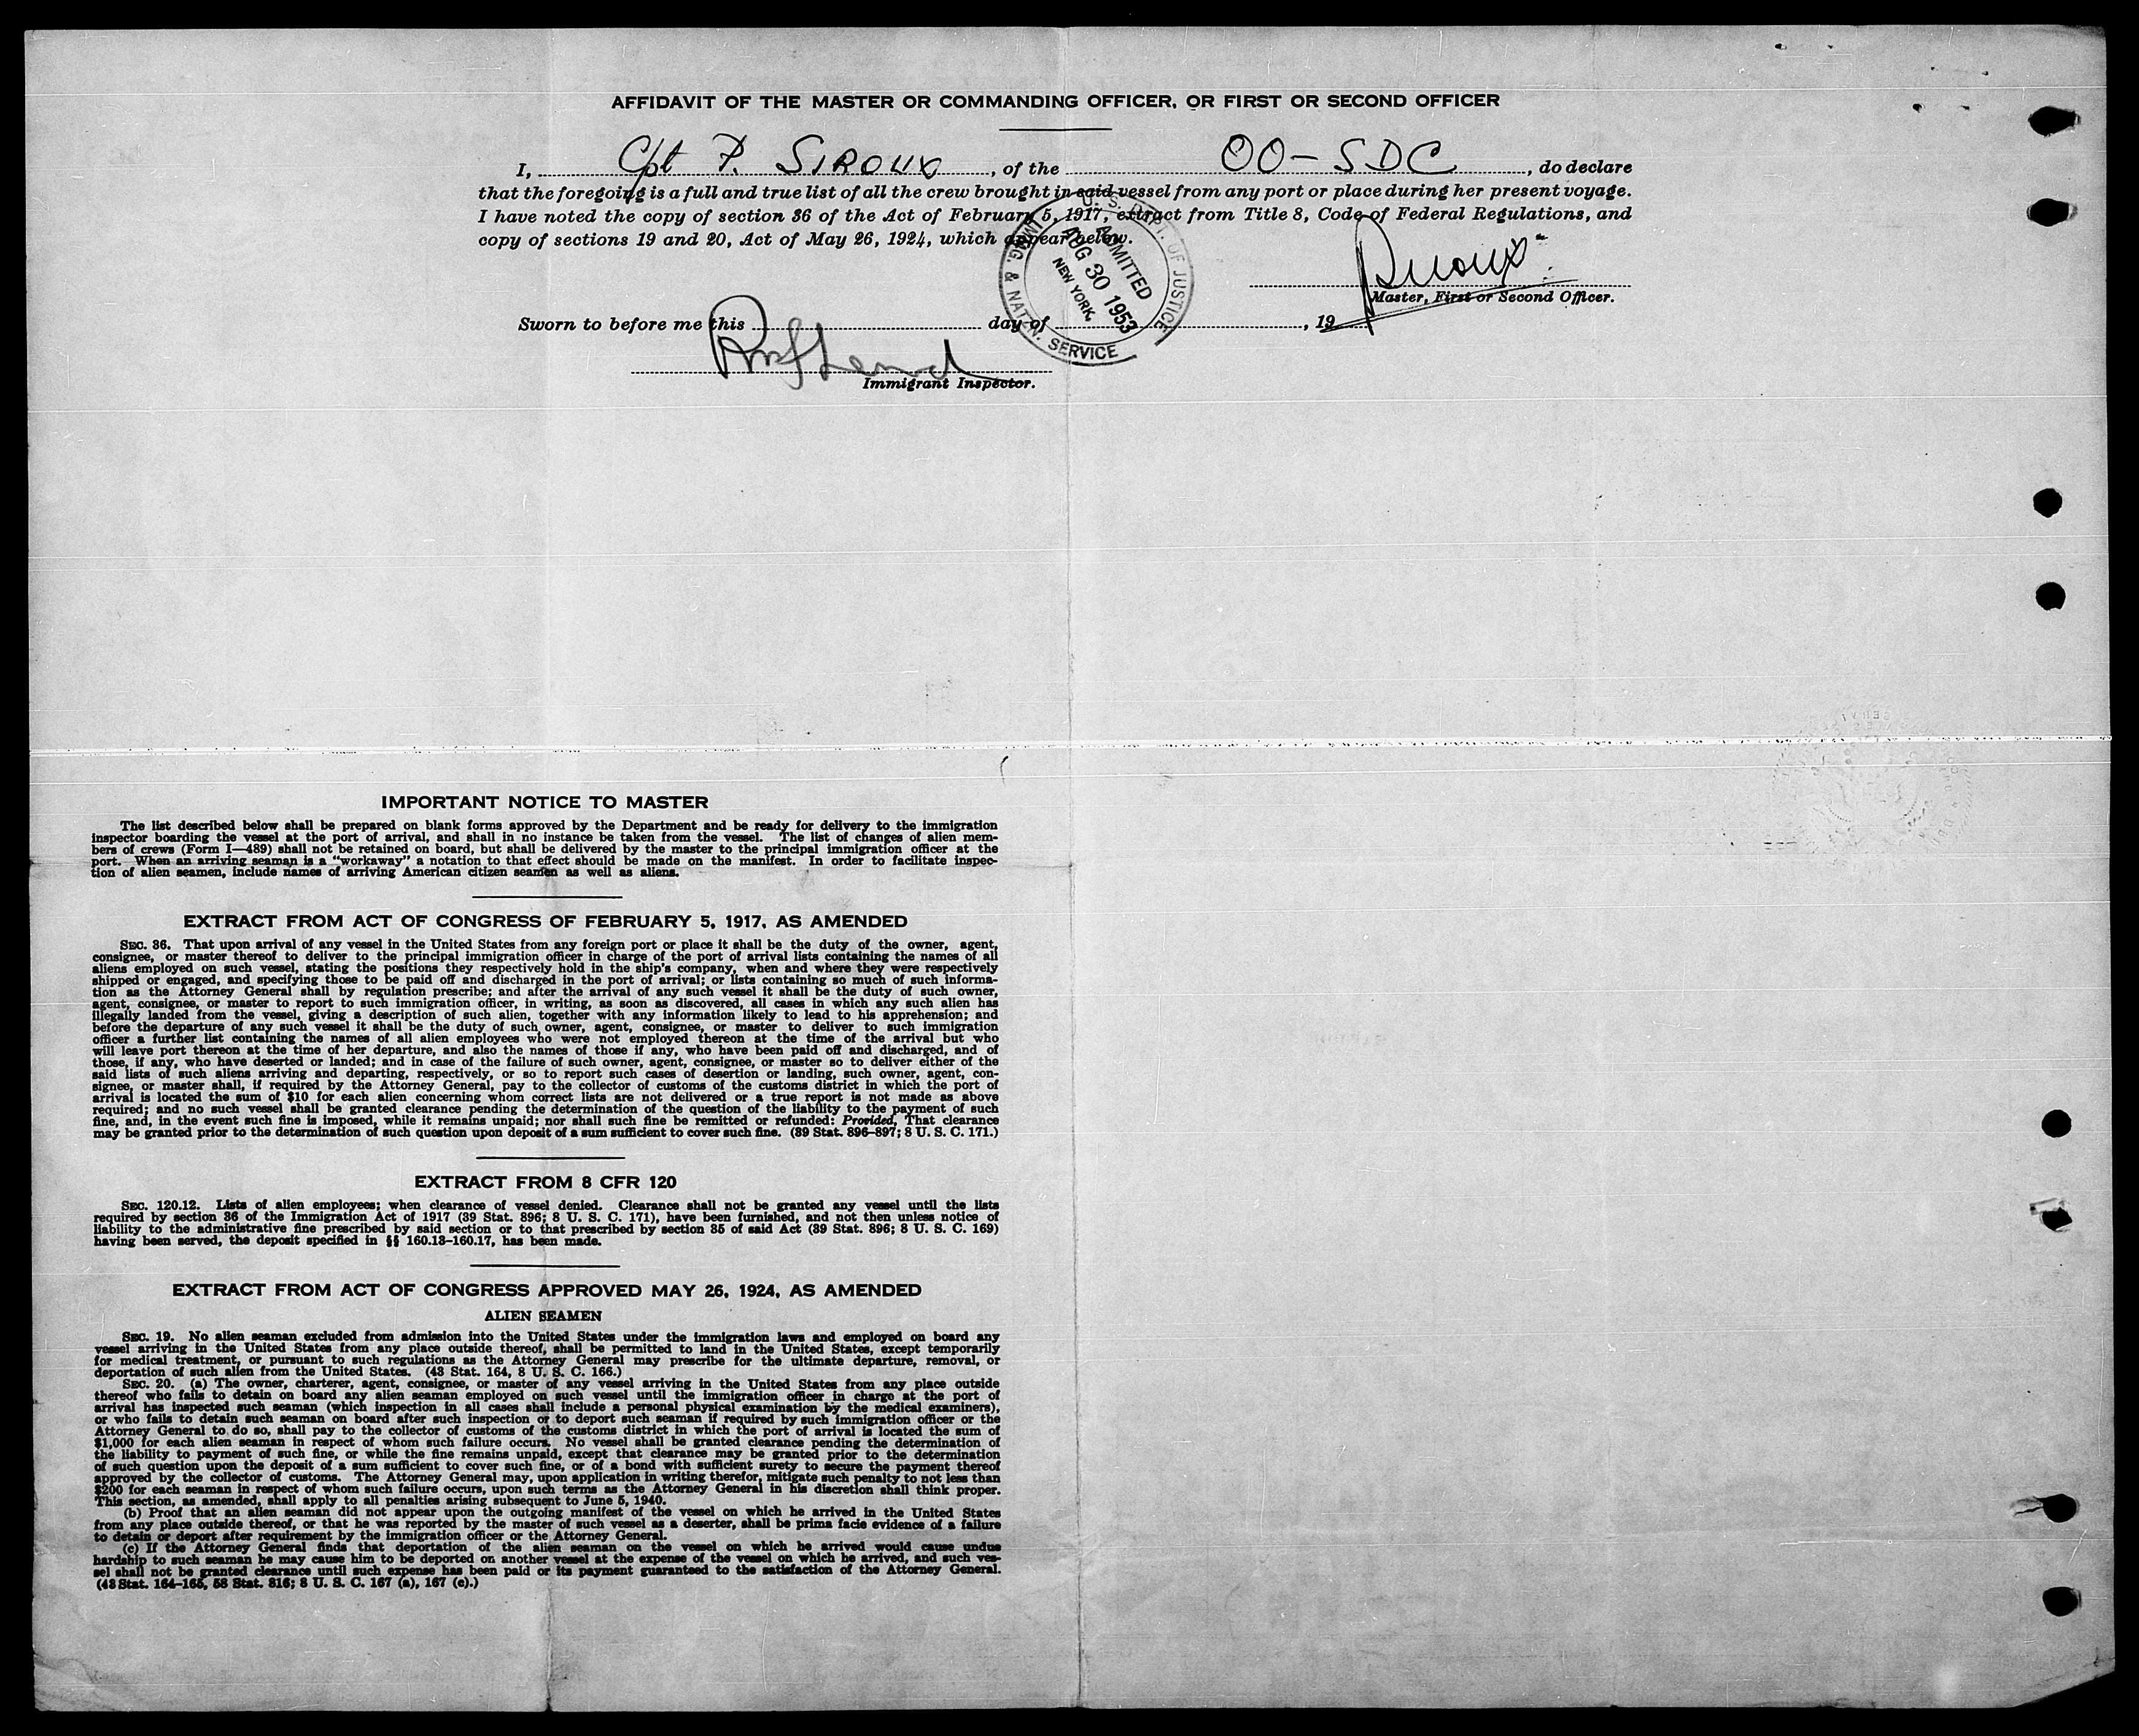 AFFIDAVIT OF THE MASTER OR COMMANDING OFFICER, OR FIRST OR SECOND OFFICER
I, Cpt P. SIROUX, of the OO-SDC, do declare
that the foregoing is a full and true list of all the crew brought in said vessel from any port or place during her present voyage.
I have noted the copy of section 36 of the Act of February 5, 1917, extract from Title 8, Code of Federal Regulations, and
copy of sections 19 and 20, Act of May 26, 1924, which appear below.
U. S. DEPT. OF JUSTICE
IMMIG. & NATZN. SERVICE
ADMITTED
AUG 30 1953
NEW YORK,
Siroux
Master, First or Second Officer.
Sworn to before me this day of , 19
Immigrant Inspector.
IMPORTANT NOTICE TO MASTER
The list described below shall be prepared on blank forms approved by the Department and be ready for delivery to the immigration
inspector boarding the vessel at the port of arrival, and shall in no instance be taken from the vessel. The list of changes of alien mem-
bers of crews (Form I—489) shall not be retained on board, but shall be delivered by the master to the principal immigration officer at the
port. When an arriving seaman is a "workaway" a notation to that effect should be made on the manifest. In order to facilitate inspec-
tion of alien seamen, include names of arriving American citizen seamen as well as aliens.
EXTRACT FROM ACT OF CONGRESS OF FEBRUARY 5, 1917, AS AMENDED
SEC. 36. That upon arrival of any vessel in the United States from any foreign port or place it shall be the duty of the owner, agent,
consignee, or master thereof to deliver to the principal immigration officer in charge of the port of arrival lists containing the names of all
aliens employed on such vessel, stating the positions they respectively hold in the ship's company, when and where they were respectively
shipped or engaged, and specifying those to be paid off and discharged in the port of arrival; or lists containing so much of such informa-
tion as the Attorney General shall by regulation prescribe; and after the arrival of any such vessel it shall be the duty of such owner,
agent, consignee, or master to report to such immigration officer, in writing, as soon as discovered, all cases in which any such alien has
illegally landed from the vessel, giving a description of such alien, together with any information likely to lead to his apprehension; and
before the departure of any such vessel it shall be the duty of such owner, agent, consignee, or master to deliver to such immigration
officer a further list containing the names of all alien employees who were not employed thereon at the time of the arrival but who
will leave port thereon at the time of her departure, and also the names of those if any, who have been paid off and discharged, and of
those, if any, who have deserted or landed; and in case of the failure of such owner, agent, consignee, or master so to deliver either of the
said lists of such aliens arriving and departing, respectively, or so to report such cases of desertion or landing, such owner, agent, con-
signee, or master shall, if required by the Attorney General, pay to the collector of customs of the customs district in which the port of
arrival is located the sum of $10 for each alien concerning whom correct lists are not delivered or a true report is not made as above
required; and no such vessel shall be granted clearance pending the determination of the question of the liability to the payment of such
fine, and, in the event such fine is imposed, while it remains unpaid; nor shall such fine be remitted or refunded: Provided, That clearance
may be granted prior to the determination of such question upon deposit of a sum sufficient to cover such fine. (39 Stat. 896–897; 8 U. S. C. 171.)
EXTRACT FROM 8 CFR 120
SEC. 120.12. Lists of alien employees; when clearance of vessel denied. Clearance shall not be granted any vessel until the lists
required by section 36 of the Immigration Act of 1917 (39 Stat. 896; 8 U. S. C. 171), have been furnished, and not then unless notice of
liability to the administrative fine prescribed by said section or to that prescribed by section 35 of said Act (39 Stat. 896; 8 U. S. C. 169)
having been served, the deposit specified in §§ 160.13–160.17, has been made.
EXTRACT FROM ACT OF CONGRESS APPROVED MAY 26, 1924, AS AMENDED
ALIEN SEAMEN
SEC. 19. No alien seaman excluded from admission into the United States under the immigration laws and employed on board any
vessel arriving in the United States from any place outside thereof, shall be permitted to land in the United States, except temporarily
for medical treatment, or pursuant to such regulations as the Attorney General may prescribe for the ultimate departure, removal, or
deportation of such alien from the United States. (43 Stat. 164, 8 U. S. C. 166.)
SEC. 20. (a) The owner, charterer, agent, consignee, or master of any vessel arriving in the United States from any place outside
thereof who fails to detain on board any alien seaman employed on such vessel until the immigration officer in charge at the port of
arrival has inspected such seaman (which inspection in all cases shall include a personal physical examination by the medical examiners),
or who fails to detain such seaman on board after such inspection or to deport such seaman if required by such immigration officer or the
Attorney General to do so, shall pay to the collector of customs of the customs district in which the port of arrival is located the sum of
$1,000 for each alien seaman in respect of whom such failure occurs. No vessel shall be granted clearance pending the determination of
the liability to payment of such fine, or while the fine remains unpaid, except that clearance may be granted prior to the determination
of such question upon the deposit of a sum sufficient to cover such fine, or of a bond with sufficient surety to secure the payment thereof
approved by the collector of customs. The Attorney General may, upon application in writing therefor, mitigate such penalty to not less than
$200 for each seaman in respect of whom such failure occurs, upon such terms as the Attorney General in his discretion shall think proper.
This section, as amended, shall apply to all penalties arising subsequent to June 5, 1940.
(b) Proof that an alien seaman did not appear upon the outgoing manifest of the vessel on which he arrived in the United States
from any place outside thereof, or that he was reported by the master of such vessel as a deserter, shall be prima facie evidence of a failure
to detain or deport after requirement by the immigration officer or the Attorney General.
(c) If the Attorney General finds that deportation of the alien seaman on the vessel on which he arrived would cause undue
hardship to such seaman he may cause him to be deported on another vessel at the expense of the vessel on which he arrived, and such ves-
sel shall not be granted clearance until such expense has been paid or its payment guaranteed to the satisfaction of the Attorney General.
(43 Stat. 164–165, 58 Stat. 816; 8 U. S. C. 167 (a), 167 (c).)